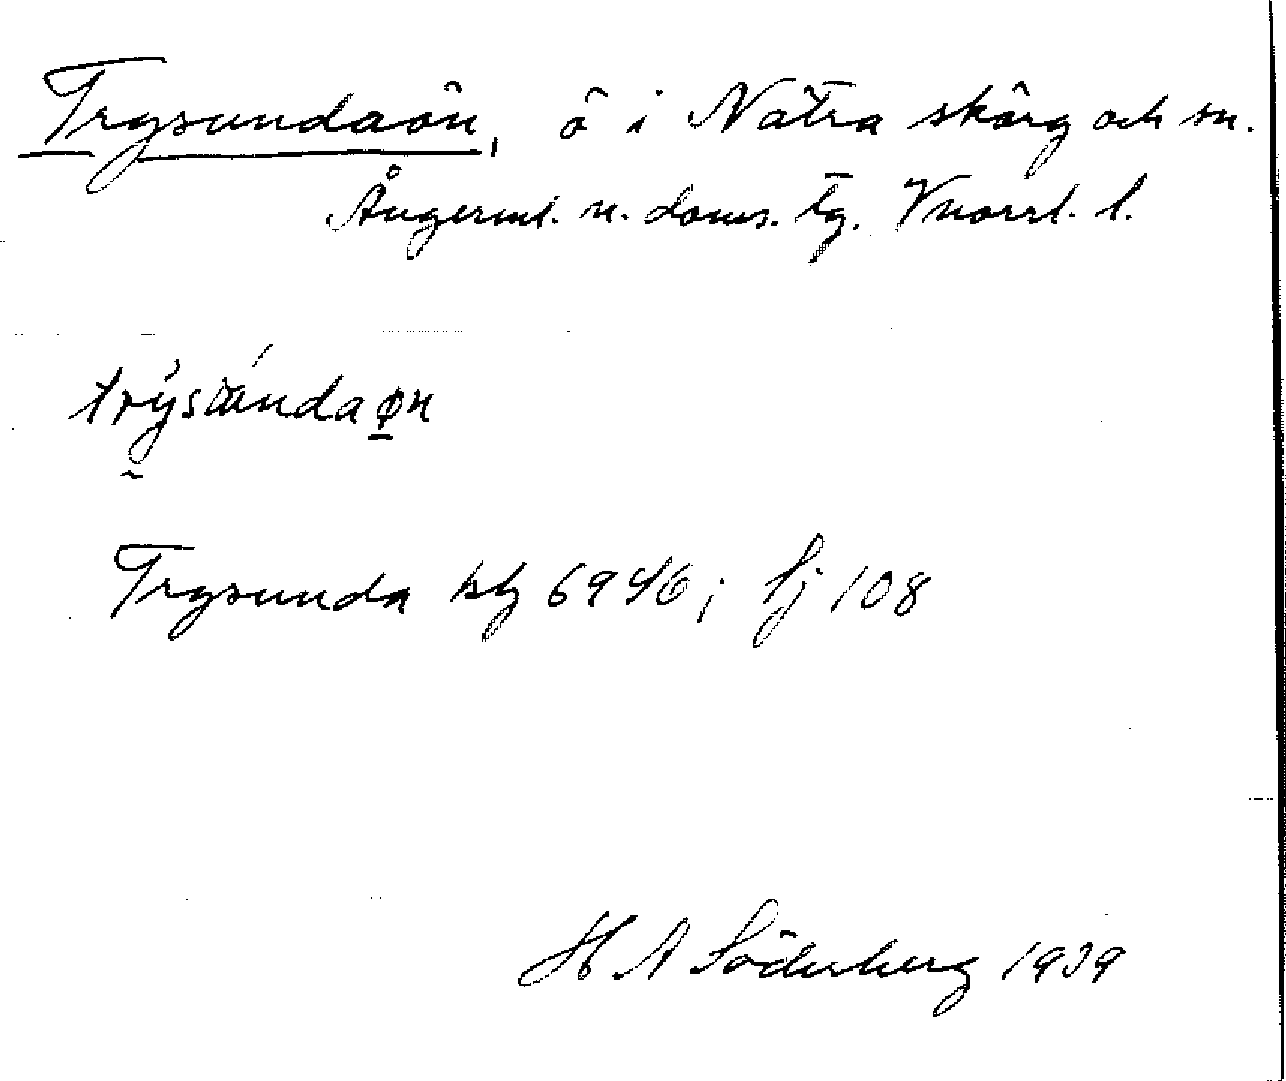 Trysundaön, ö i Nätra skärg och sn.
Ångerml. n. doms. tg. Vnorrl. l.
Trysunda kbl 69 46; Sj 108
H A Söderberg 1939